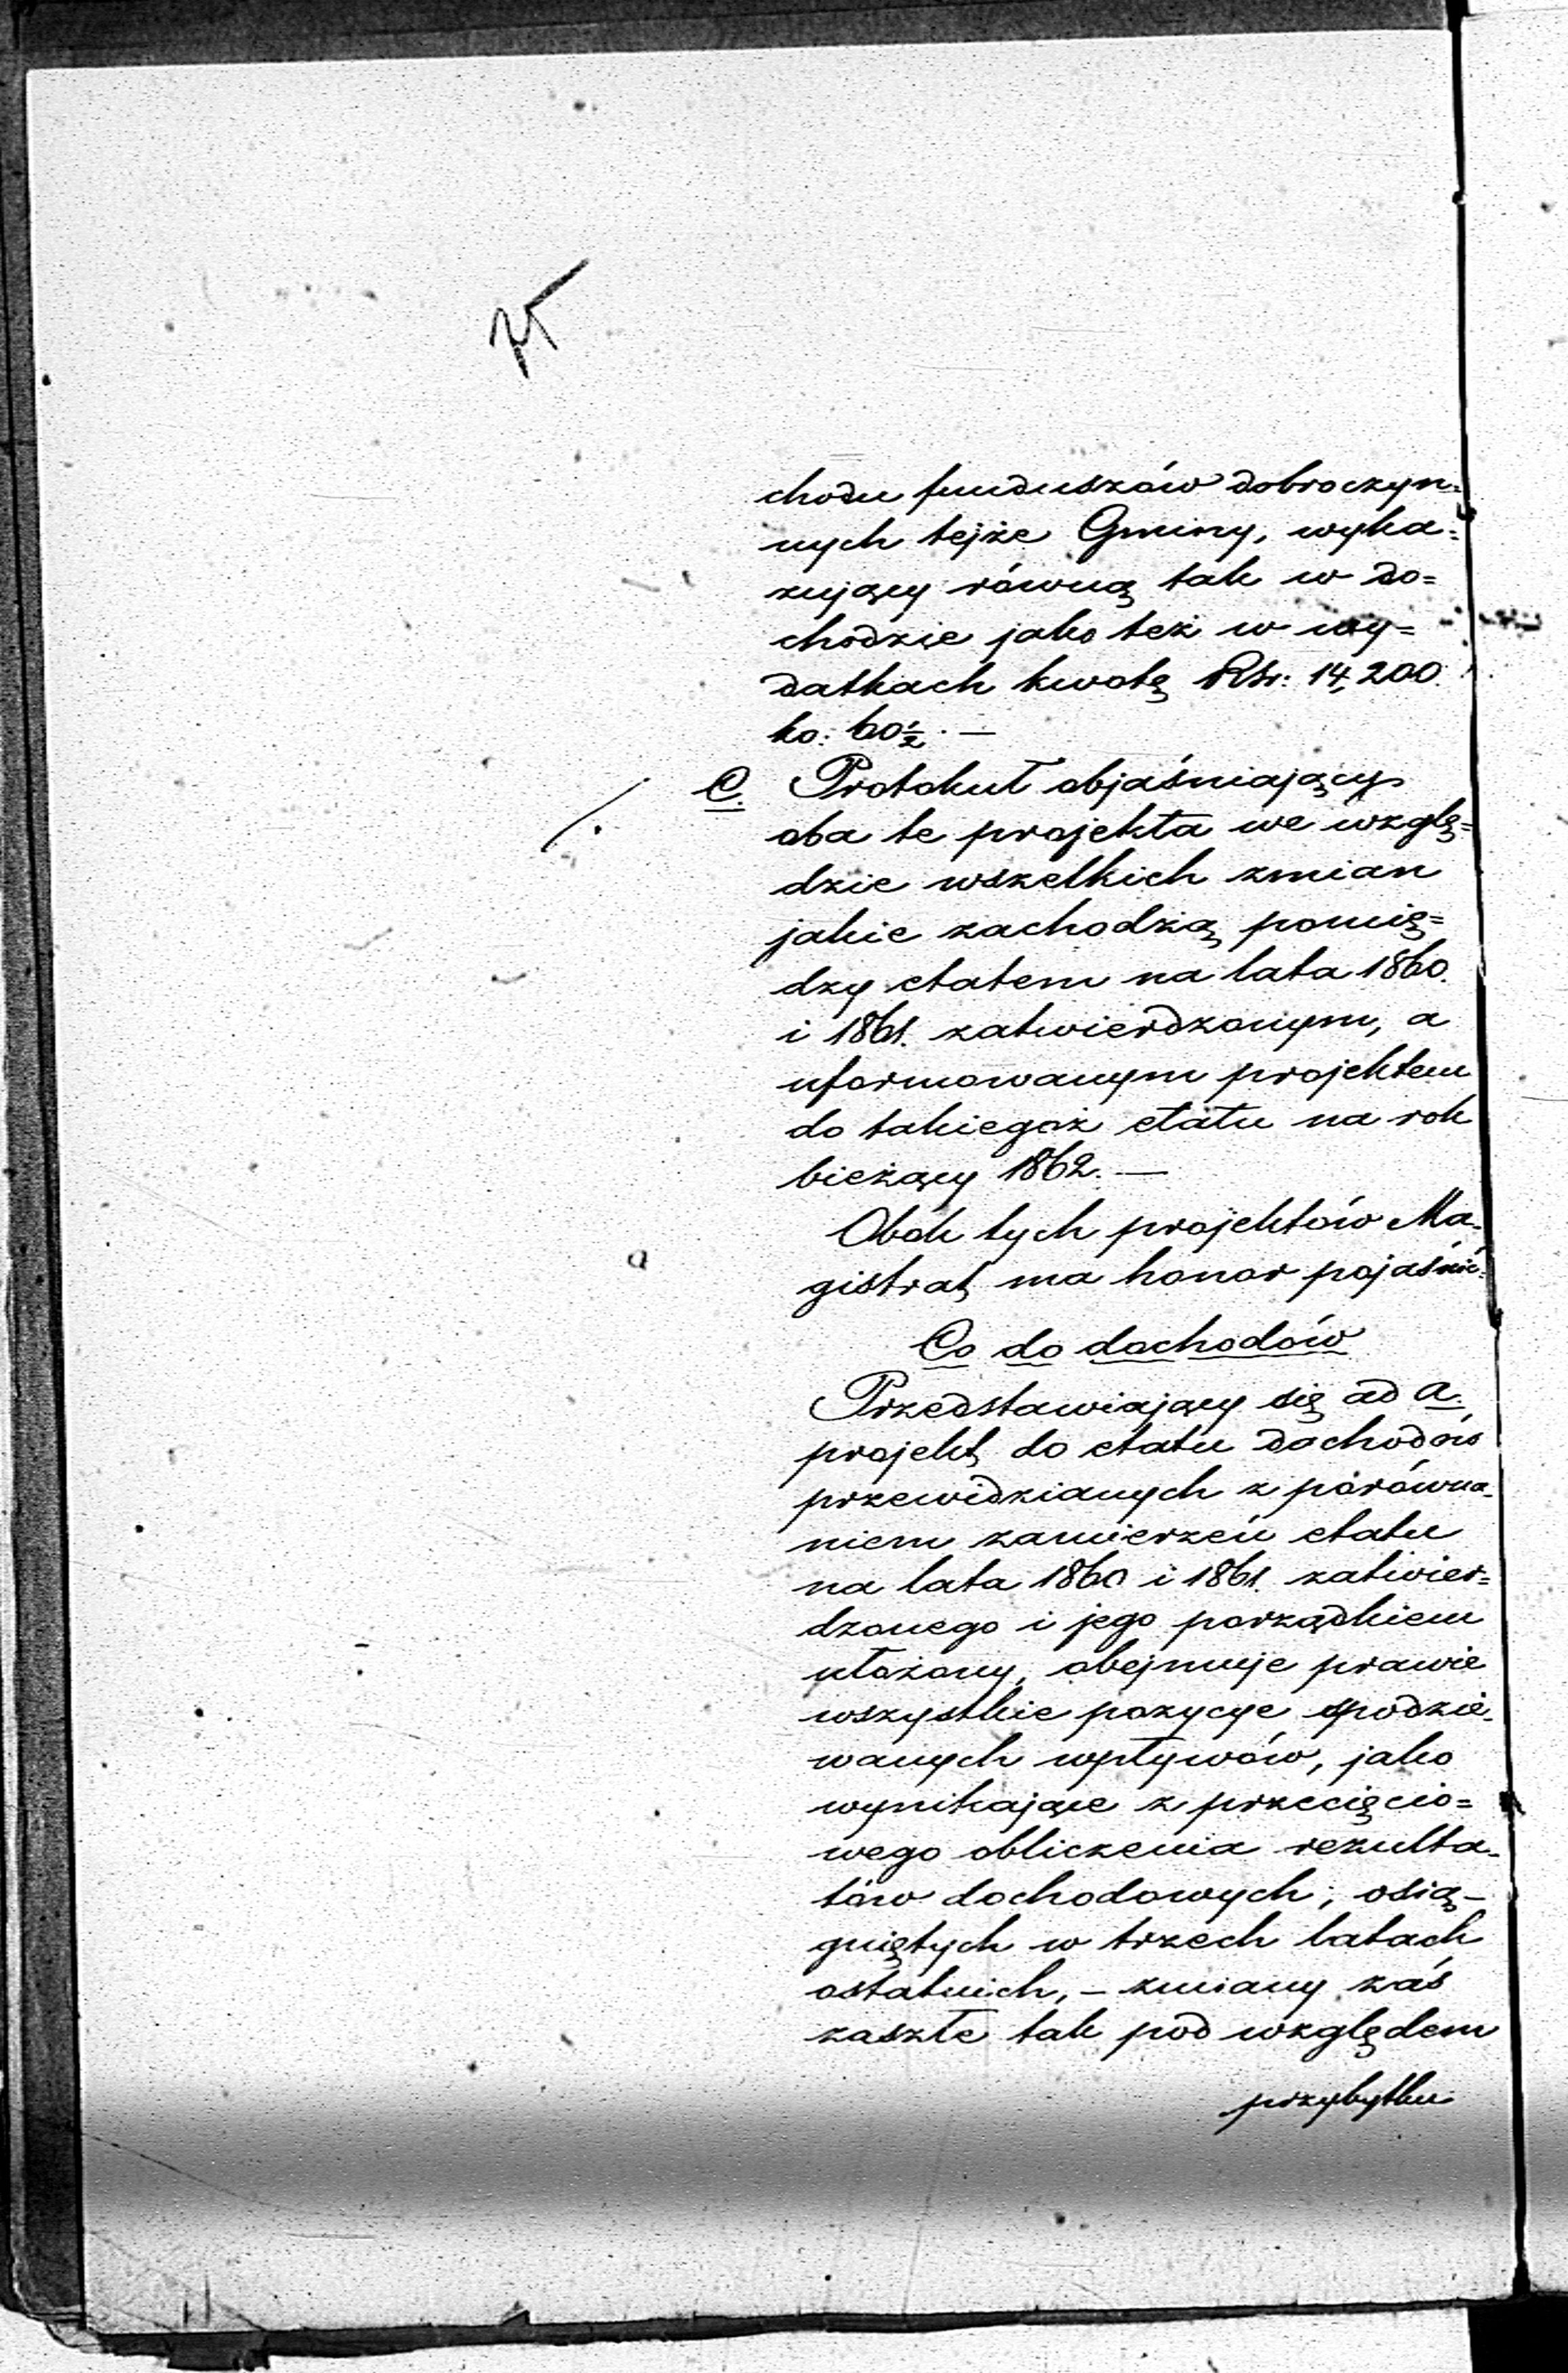 chodu funduszów dobroczyn=
nych tejże Gminy, wyka=
zujący równą tak w do=
chodzie jako też w wy=
datkach kwotę Rsr: 14,200.
ko: 60½. —
C. Protokuł objaśniający
oba te projekta we wzglę=
dzie wszelkich zmian
jakie zachodzą pomię=
dzy etatem na lata 1860.
i 1861. zatwierdzonym, a
uformowanym projektem
do takiegoż etatu na rok
bieżący 1862. —
Obok tych projektów Ma-
gistrat ma honor pojaśnić:
Co do dochodów
Przedstawiający się ad a.
projekt do etatu dochodów
przewidzianych z porówna-
niem zamierzeń etatu
na lata 1860 i 1861. zatwier=
dzonego i jego porządkiem
ułożony, obejmuje prawie
wszystkie pozycye spodzie-
wanych wpływów, jako
wynikające z przecięcio=
wego obliczenia rezulta-
tów dochodowych, osią-
gniętych w trzech latach
ostatnich, – zmiany zaś
zaszłe tak pod względem
przybytku